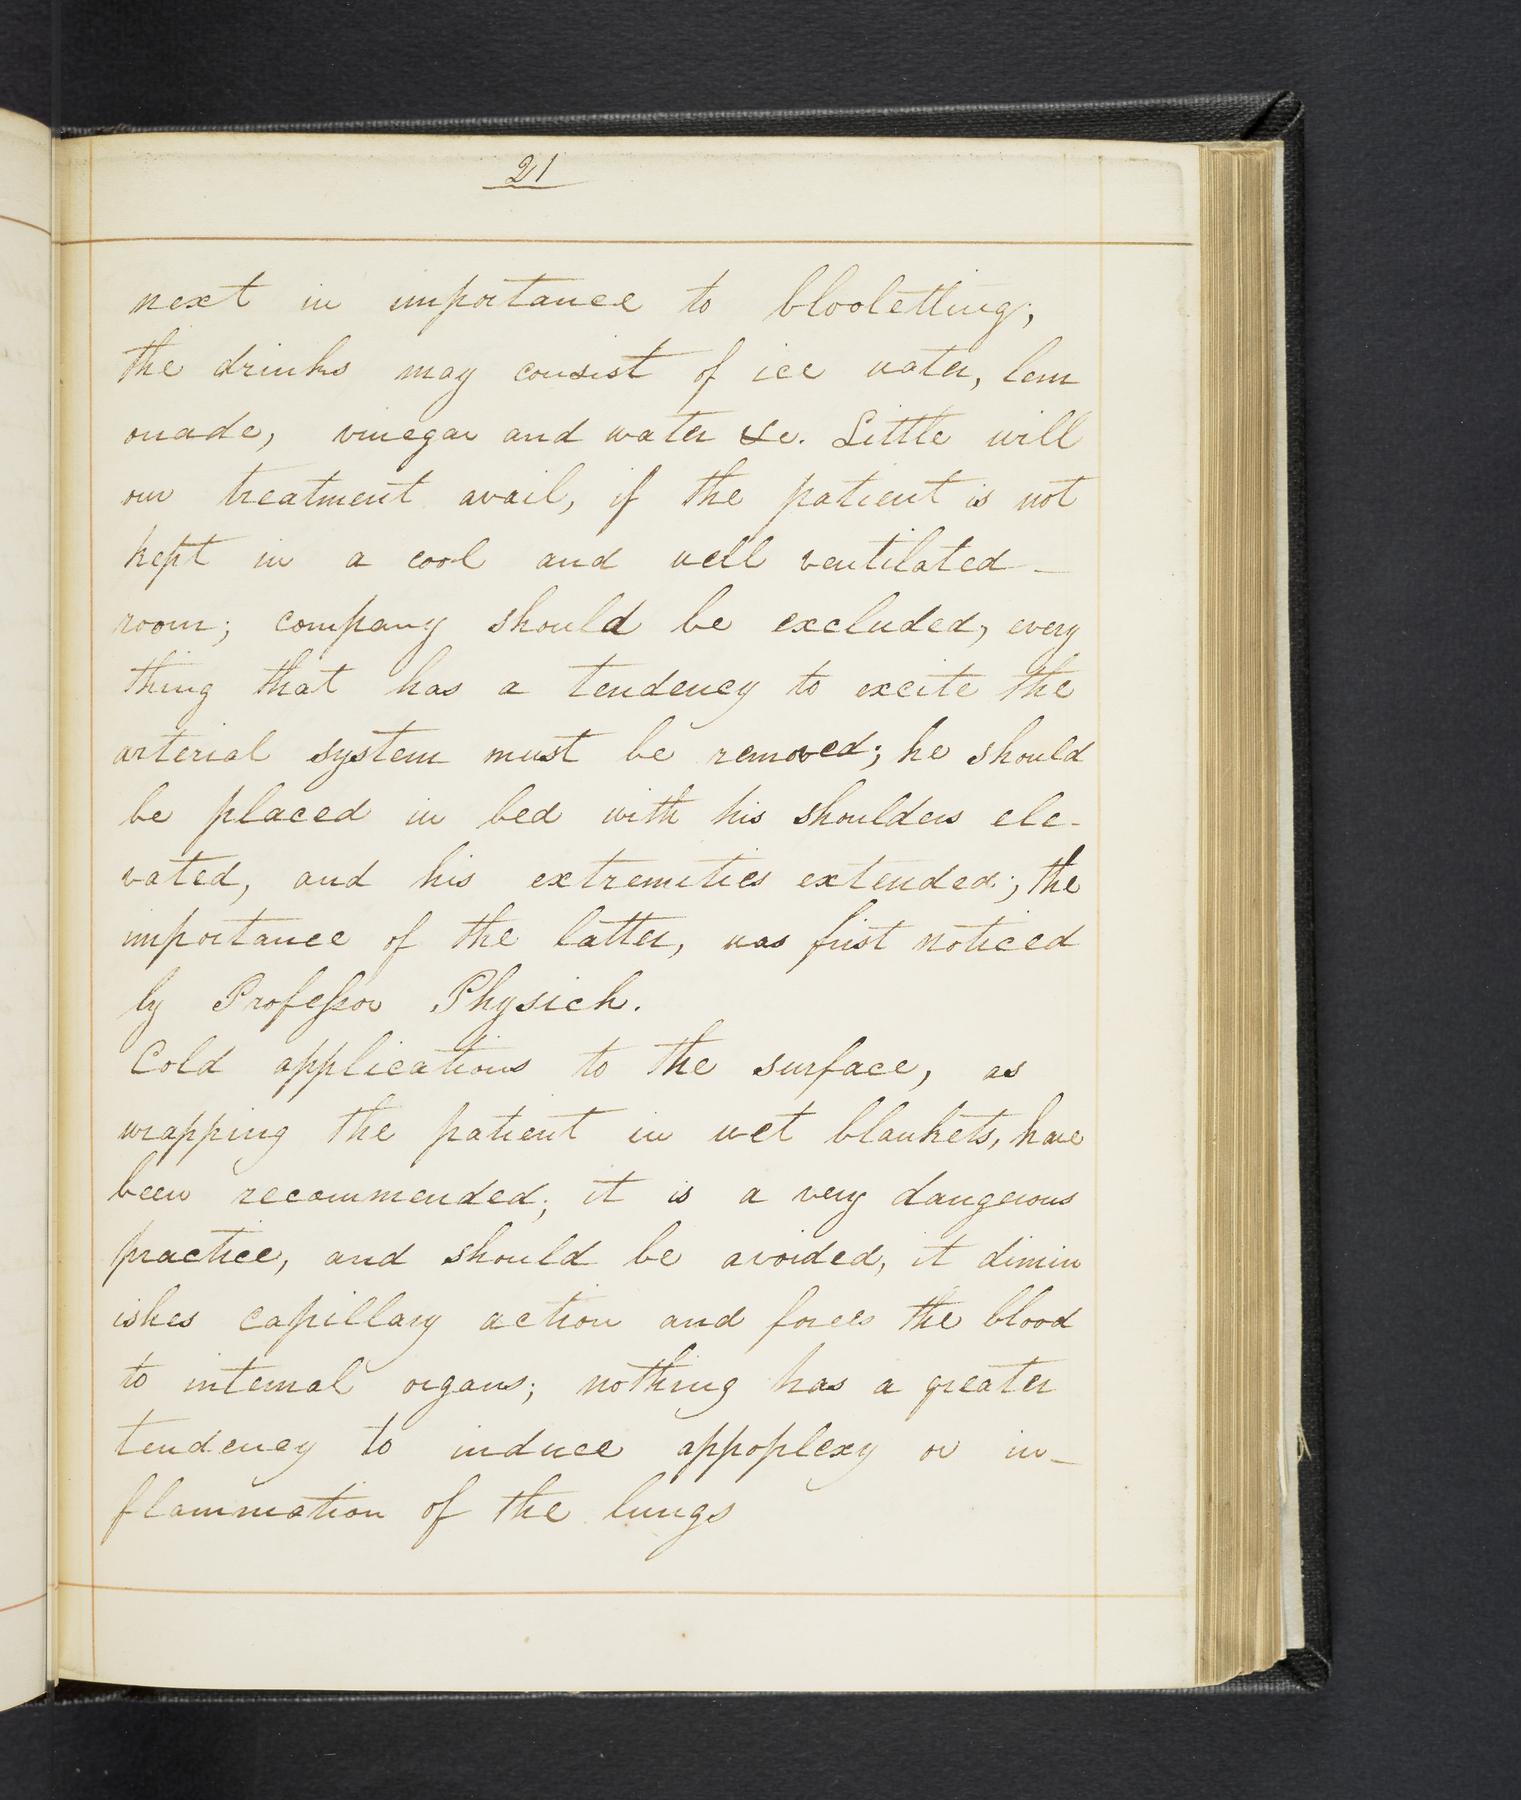 21
next in importance to blooletting;
the drinks may consist of ice water, lem
onade, vinegar and water &c. Little will
our treatment avail, if the patient is not
kept in a cool and well ventilated_
room; company should be excluded, every
thing that has a tendency to excite the
arterial system must be removed; he should
be placed in bed with his shoulders ele-
vated, and his extremities extended; the
importance of the latter, was first noticed
by Professor Physick.
Cold applications to the surface, as
wrapping the patient in wet blankets, have
been recommended; it is a very dangerous
practice, and should be avoided, it dimin
ishes capillary action and forces the blood
to internal organs; nothing has a greater
tendency to induce appoplexy or in_
flammation of the lungs